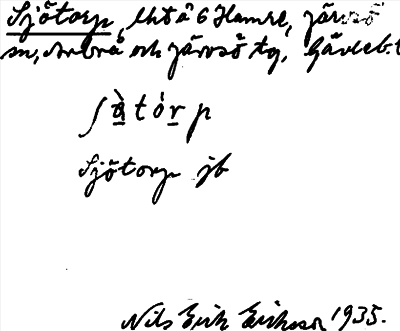 Sjötorp, lht å 6 Hamre, Järvsö
sn, Arbrå och Järvsö tg, Gävleb. l
ʃø̀tórp
Sjötorp jb
Nils Erik Eriksson 1935.